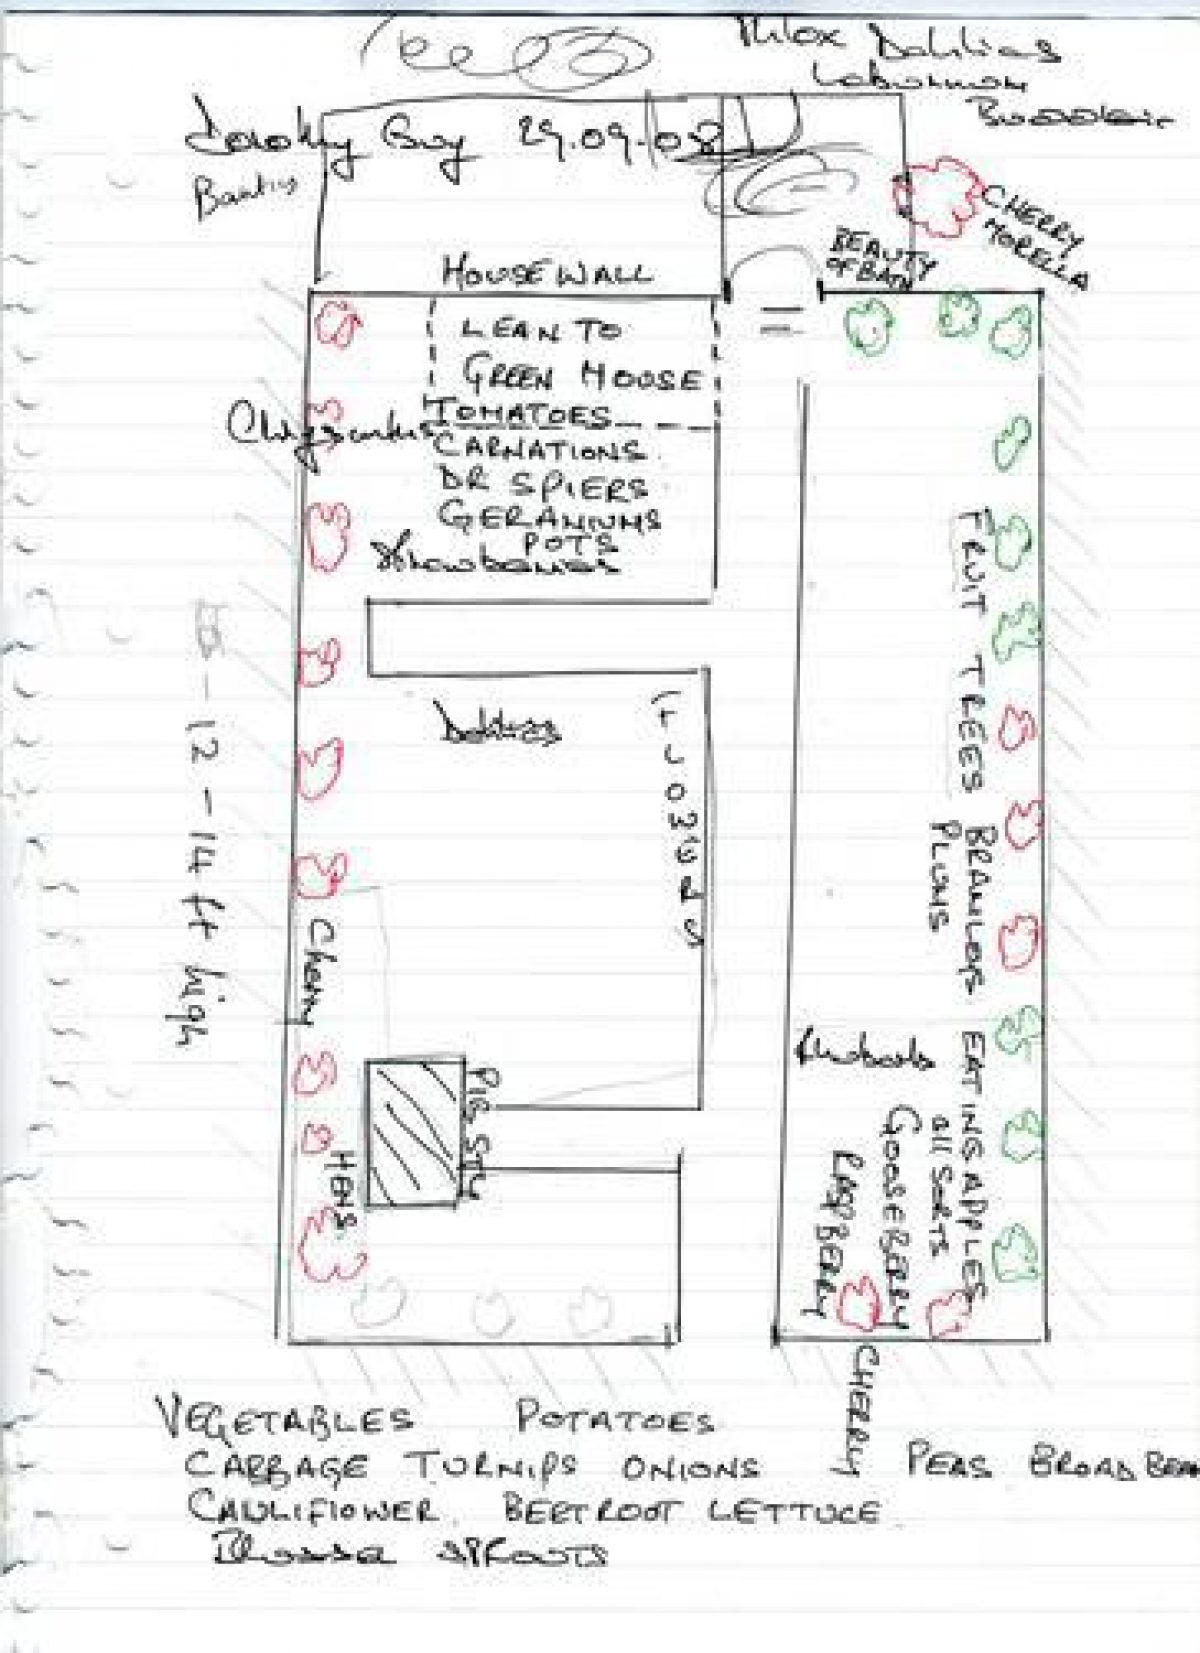 Phlox Dahlias
Guy 29.09.08
CHERRY
MORELLA
BEAUTY
OF BATH
HOUSE WALL
LEAN TO
GREEN HOUSE
TOMATOES
CARNATIONS
DR SPIERS
GERANIUMS
POTS
Strawberries
12 - 14 ft high
Dahlias
FRUIT TREES BRAMLEYS EATING APPLES
PLUMS
all SORTS
Cherry
Rhubarb
GOOSEBERRY
RASPBERRY
PIG STY
HENS
CHERRY
VEGETABLES POTATOES
CABBAGE TURNIPS ONIONS PEAS BROAD BEAN
CAULIFLOWER. BEETROOT LETTUCE
SPROUTS